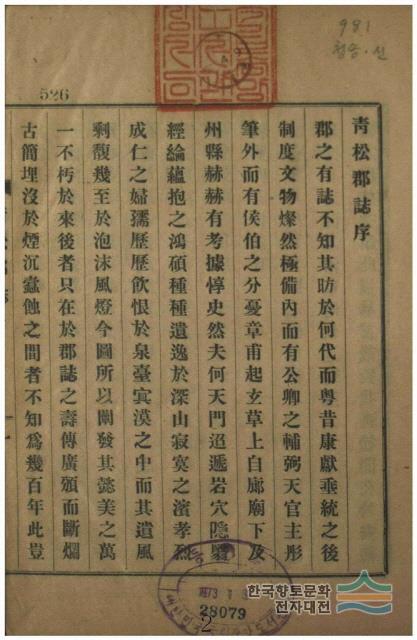 981
청송·신
526
青松郡誌序
郡之有誌不知其昉於何代而粤昔康獻垂統之後
制度文物燦然極備內而有公卿之輔弼天官主彤
筆外而有侯伯之分憂章甫起玄草上自廊廟下及
州縣赫赫有考據惇史然夫何天門迢遞岩穴隱翳
經綸蘊抱之鴻碩種種遺逸於深山寂寞之濱孝烈
成仁之婦孺歷歷飮恨於泉臺㝠漠之中而其遺風
剩馥幾至於泡沫風燈今圖所以闡發其懿美之萬
一不朽於來後者只在於郡誌之壽傳廣頒而斷爛
古簡埋沒於煙沉蠹蝕之間者不知爲幾百年此豈
28079
2
한국향토문화
전자대전